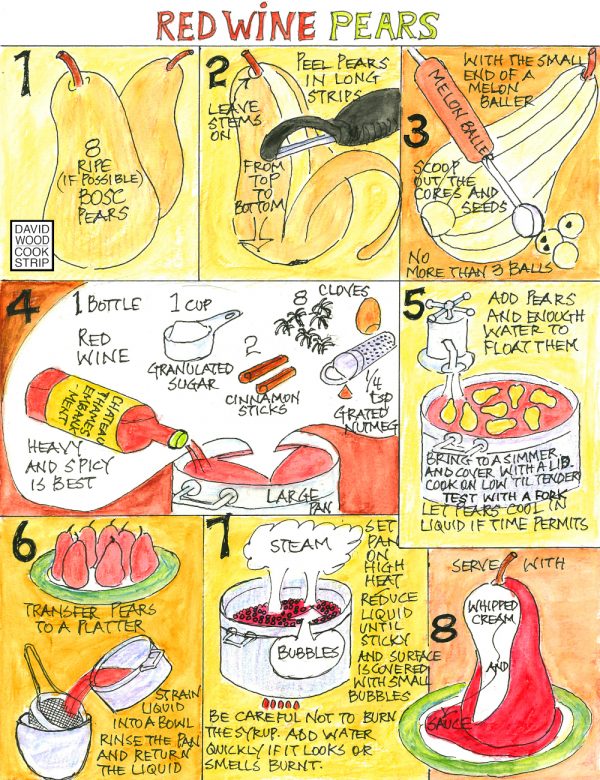 RED WINE PEARS
1
8
RIPE
(IF POSSIBLE)
BOSC
PEARS
DAVID
WOOD
COOK
STRIP
2
PEEL PEARS
IN LONG
STRIPS
LEAVE
STEMS
ON
FROM
TOP
TO
BOTTOM
3
WITH THE SMALL
END OF A
MELON
BALLER
MELON BALLER
SCOOP
OUT THE
CORES AND
SEEDS
NO
MORE THAN 3 BALLS
4
1 BOTTLE
RED
WINE
1 CUP
GRANULATED
SUGAR
8
CLOVES
2
CINNAMON
STICKS
1/4
tsp
GRATED
NUTMEG
CHATEAU
THAMES
EMBANK
-MENT
HEAVY
AND SPICY
IS BEST
LARGE
PAN
5
ADD PEARS
AND ENOUGH
WATER TO
FLOAT THEM
BRING TO A SIMMER
AND COVER WITH A LID.
COOK ON LOW TIL TENDER
TEST WITH A FORK
LET PEARS COOL IN
LIQUID IF TIME PERMITS
6
TRANSFER PEARS
TO A PLATTER
STRAIN
LIQUID
INTO A BOWL
RINSE THE PAN
AND RETURN
THE LIQUID
7
STEAM
BUBBLES
SET
PAN
ON
HIGH
HEAT
REDUCE
LIQUID
UNTIL
STICKY
AND SURFACE
IS COVERED
WITH SMALL
BUBBLES
BE CAREFUL NOT TO BURN
THE SYRUP. ADD WATER
QUICKLY IF IT LOOKS OR
SMELLS BURNT.
8
SERVE WITH
WHIPPED
CREAM
AND
SAUCE